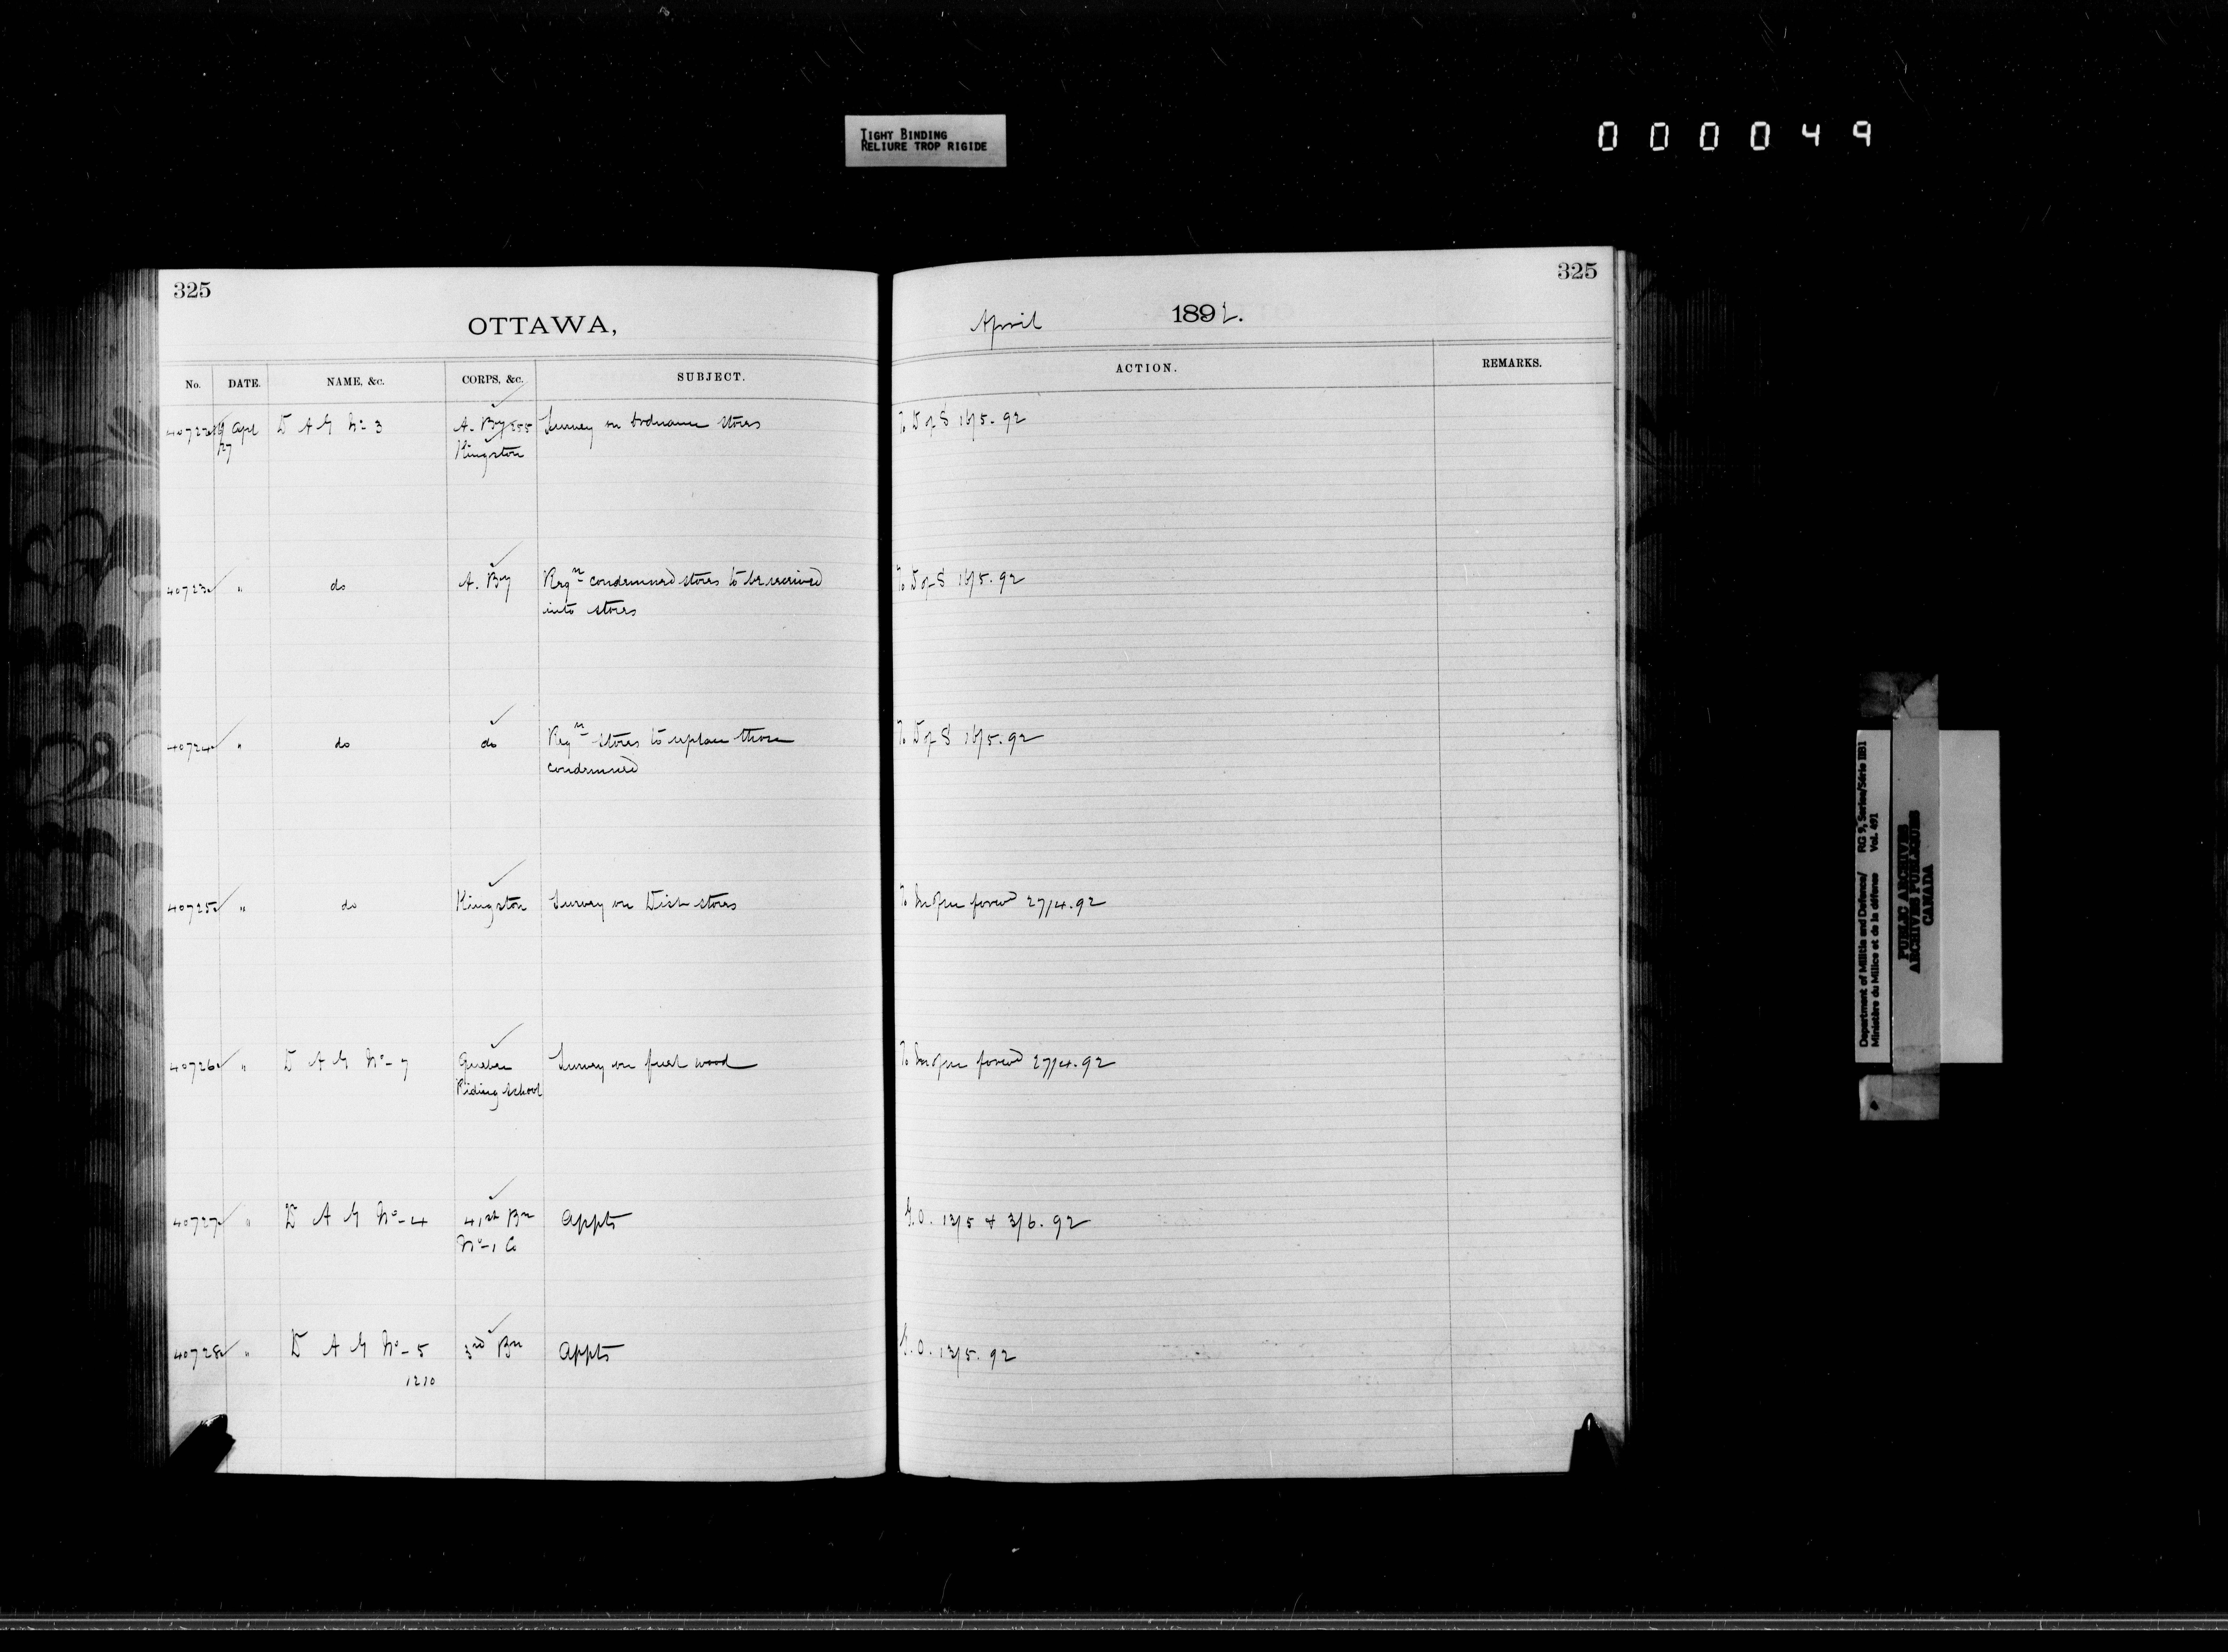 TIGHT BINDING
RELIURE TROP RIGIDE
000049
325
325
OTTAWA,
April 1892.
No. DATE. NAME, &c. CORPS, &c. SUBJECT. ACTION. REMARKS.
40722 Apl D A G No 3 A. By Survey on Ordnance stores To D of S 16/5.92
27 Kingston
40723 " do A. By Reqn condemned stores to be received To D of S 16/5.92
into stores
40724 " do do Reqn stores to replace those To D of S 16/5.92
condemned
40725 " do Kingston Survey on Dist stores To forwd 27/4.92
40726 " D A G No- 7 Quebec Survey on fuel wood To forwd 27/4.92
Riding School
40727 " D A G No- 4 41st Bn Appts G.O. 13/5 + 3/6.92
No-1 Co
40728 " D A G No- 5 3rd Bn Appts G.O. 13/5.92
1210
Department of Militia and Defence/ RG 9, Series/Série IIB1
Ministère du Milice et de la défense Vol. 491
PUBLIC ARCHIVES
ARCHIVES PUBLIQUES
CANADA